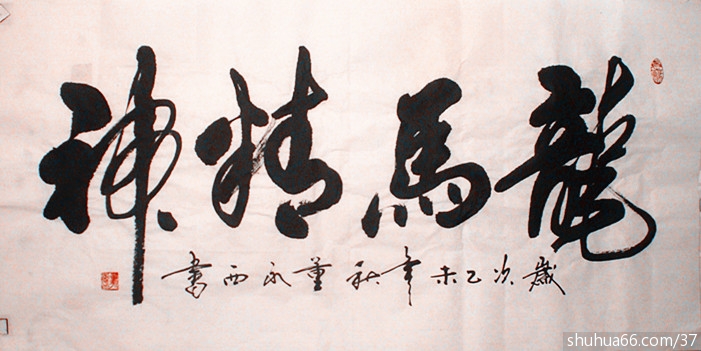 龍馬精神
歲次乙未年秋董永西書
shuhua66.com/37